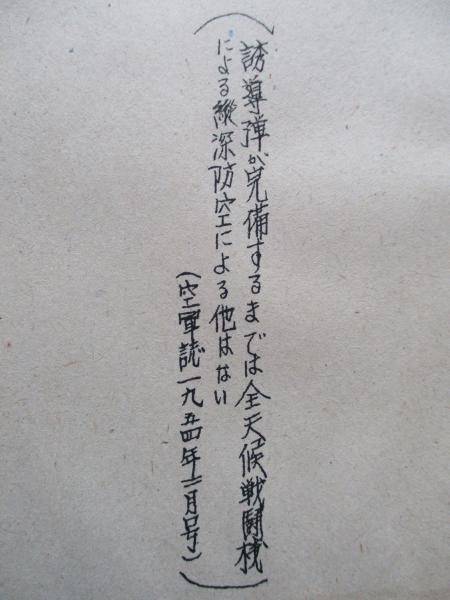 （誘導弾が完備するまでは全天候戦闘機
による縦深防空による他はない
（空軍誌一九五四年二月号））